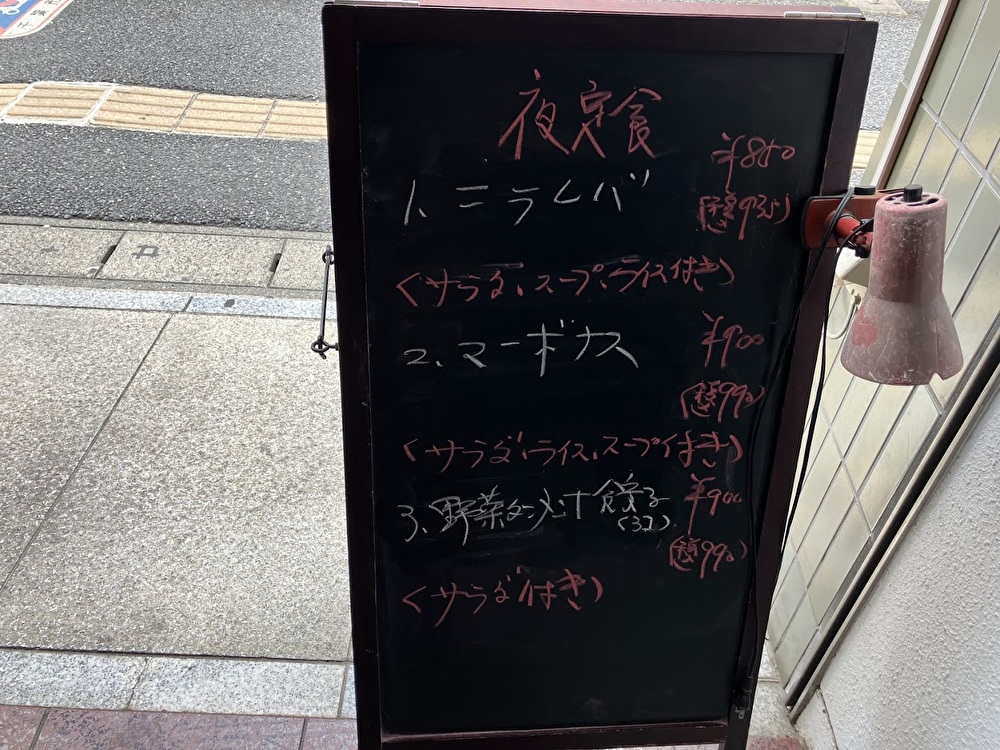 夜定食
¥850
1、ニラレバ
(税込935)
<サラダ、スープ、ライス付き>
¥900
2、マーボナス
(税込990)
<サラダ、ライス、スープ付き>
¥900
3、野菜タンメン+餃子
(3コ)
(税込990)
<サラダ付き>